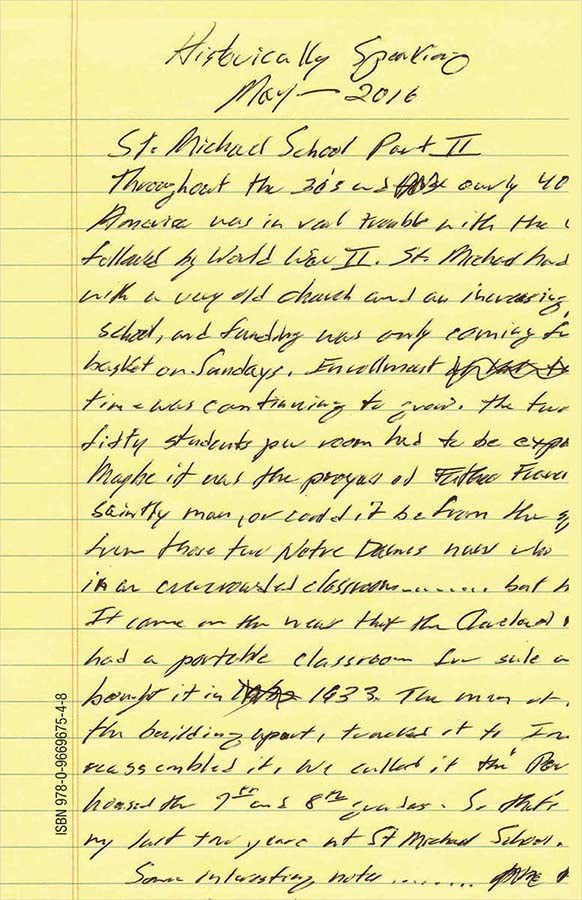 Historically Speaking
May — 2016
St. Michael School Part II
Throughout the 30's and early 40
America was in real trouble with the
followed by World War II. St. Michael had
with a very old church and an increasing
school, and funding was only coming
basket on Sundays. Enrollment
time was continuing to grow. The two
fifty students per room had to be
Maybe it was the prayers of Father
saintly man, or could it be from the
from those two Notre Dames nuns who
in an overcrowded classroom......... but
It came on the news that the Cleveland
had a portable classroom for sale
bought it in 1933. The men
the building apart, trucked it to
reassembled it. We called it the
housed the 7th and 8th grades. So that's
my last two years at St Michael School.
Some interesting notes ........
ISBN 978-0-9669675-4-8